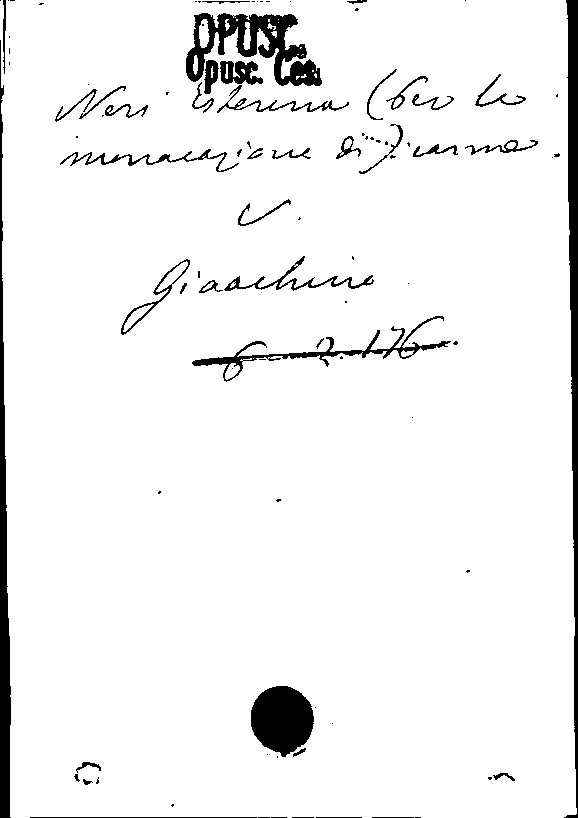 OPUSC.
Opusc. Ces.
Neri Esterina (Per la
monacazione di....) carme.
V.
Gioachino
6 2.176.